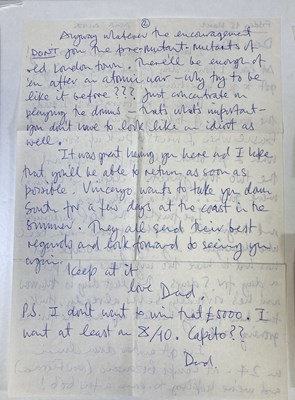 ②
Anyway whatever the encouragement
DON'T join the pre-mutant-mutants of
old London town. There'll be enough of
'em after an atomic war - why try to be
like it before??? Just concentrate on
playing the drums - that's what's important -
you don't have to look like an idiot as
well.
It was great having you here and I hope
that you'll be able to return as soon as
possible. Vincenzo wants to take you down
South for a few days at the coast in the
summer. They all send their best
regards and look forward to seeing you
again.
Keep at it
love Dad.
P.S. I don't want to win that £5000. I
want at least an 8/10. Capito??
Dad